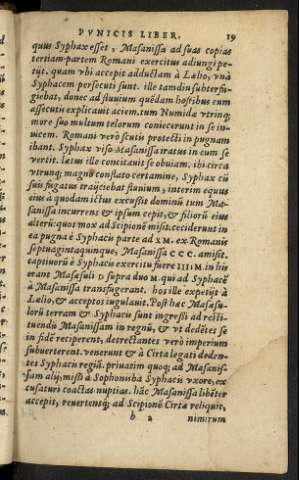 PVNICIS LIBER. 19
quus Syphax esset, Masanissa ad suas copias
tertiam partem Romani exercitus adiungi pe-
tijt. quam vbi accepit adductam à Lælio, vnà
Syphacem persecuti sunt. ille tamdiu subterfu-
giebat, donec ad fluuium quēdam hostibus eum
assecutis explicauit aciem. tum Numidæ vtrinq;
more suo multum telorum coniecerunt in se in-
uicem. Romani verò scutis protecti in pugnam
ibant. Syphax viso Masanissa iratus in eum se
vertit. lætus ille concitauit se obuiam. ibi circa
vtrunq; magno conflato certamine, Syphax cū
suis fugatus traijciebat fluuium, interim equus
eius a quodam ictus excußit dominū tum Ma-
sanissa incurrens & ipsum cepit, & filiorū eius
alterū: quos mox ad Scipionē misit. ceciderunt in
ea pugna è Syphacis parte ad XM. ex Romanis
septuaginta quinque, Masanissa CCC. amisit.
captiuorū è Syphacis exercitu fuere IIII M. in his
erant Masæsuli D. supra duo M. qui ad Syphacē
à Masanissa transfugerant. hos ille expetijt à
Lælio, & acceptos iugulauit. Post hæc Masæsu-
lorū terram & Syphacis sunt ingressi ad resti-
tuendū Masanissam in regnū, & vt dedētes se
in fidē reciperent, detrectantes verò imperium
subuerterent. venerunt & à Cirta legati deden-
tes Syphacis regiā. priuatim quoq; ad Masanis-
sam alij missi à Sophonisba Syphacis vxore, ex
cusaturi coactas nuptias. hāc Masanissa libēter
accepit, reuertensq; ad Scipionē Cirtæ reliquit,
b 2 nimirum